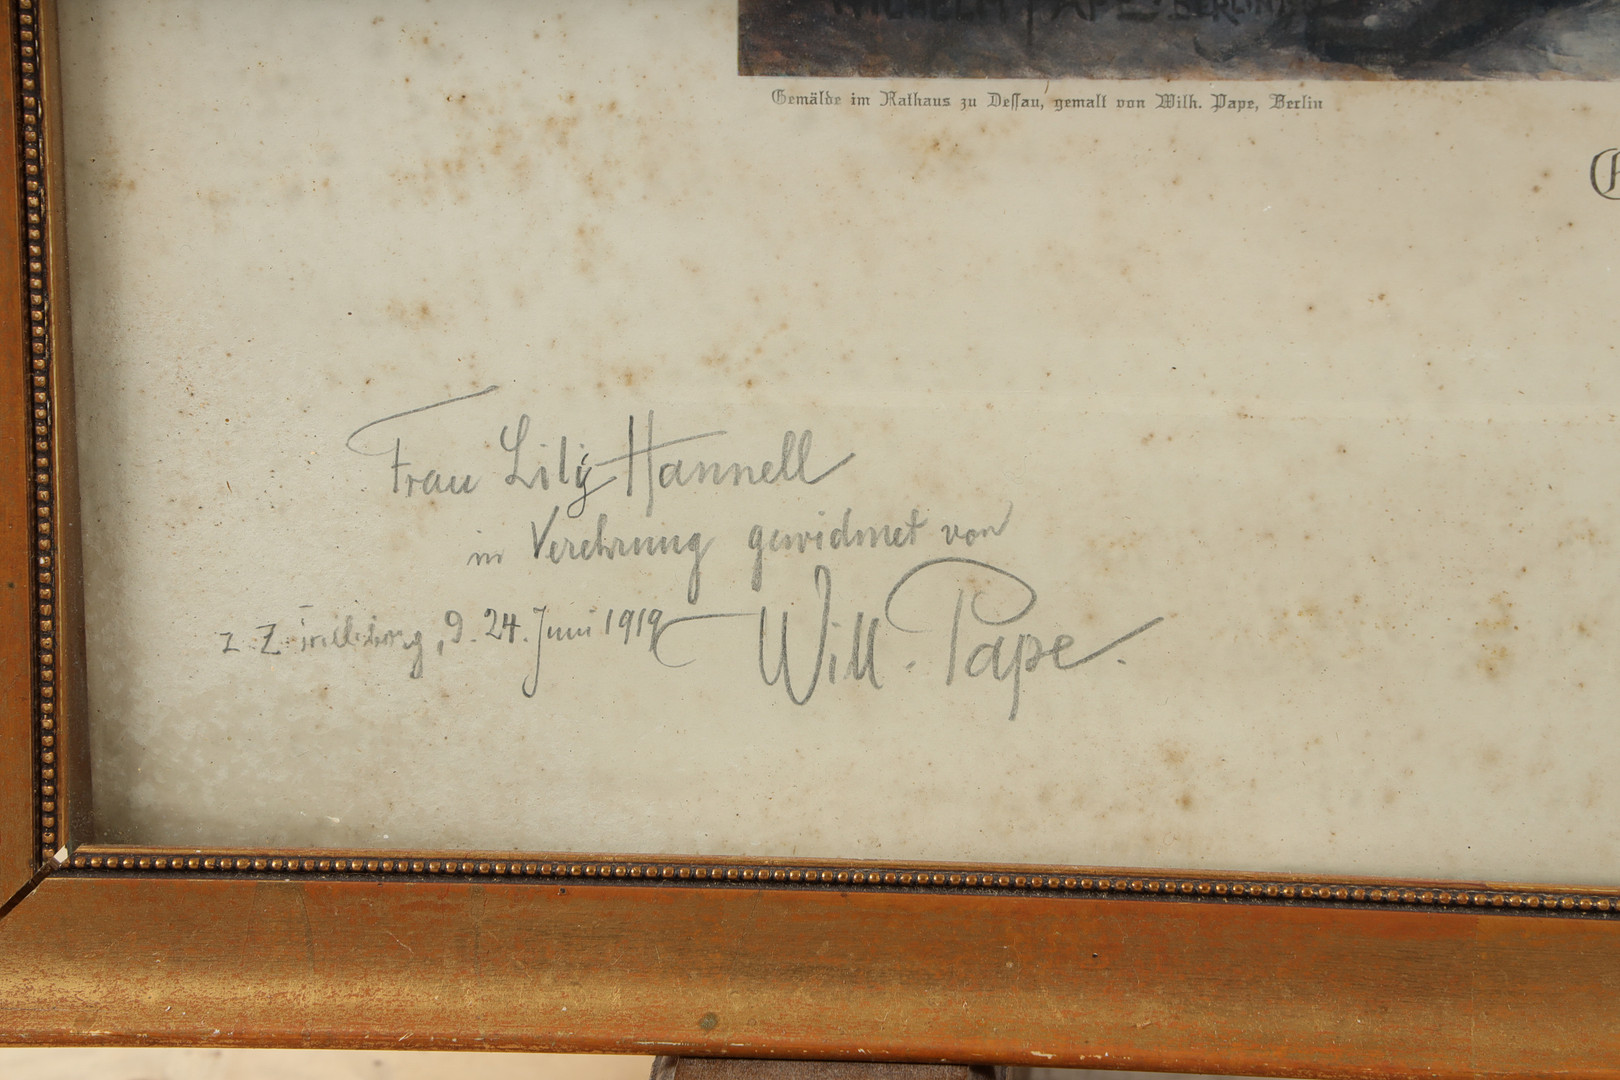 WILHELM PAPE · BERLIN
Gemälde im Rathaus zu Dessau, gemalt von Wilh. Pape, Berlin
Frau Lily Hannell
in Verehrung gewidmet von
z. Z. , d. 24. Juni 1919 Will. Pape.